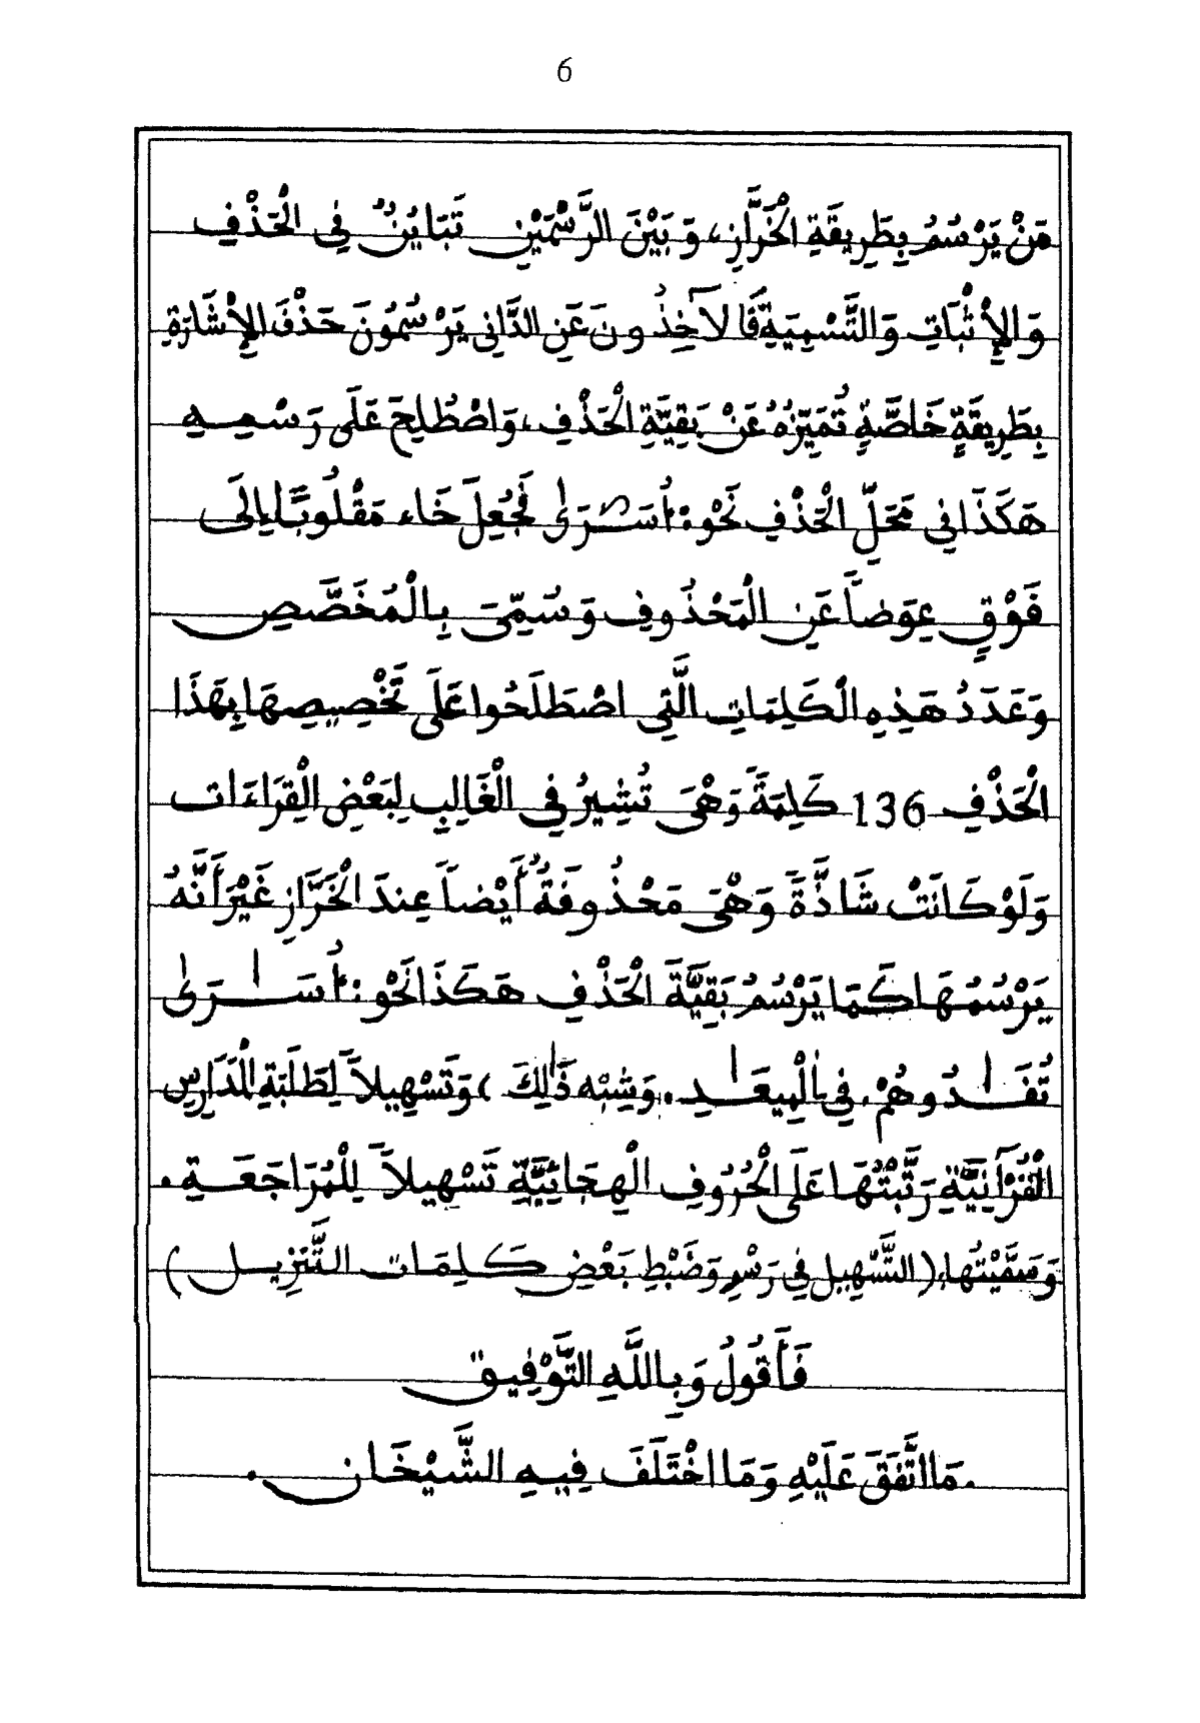 6
مَنْ يَرْسُمُ بِطَرِيقَةِ الْخَرَّازِ، وَبَيْنَ الرَّسْمَيْنِ تَبَايُنٌ فِي الْحَذْفِ
وَالإِثْبَاتِ وَالتَّسْمِيَةِ فَالآخِذُونَ عَنِ الدَّانِي يَرْسُمُونَ حَذْفَ الإِشَارَةِ
بِطَرِيقَةٍ خَاصَّةٍ تُمَيِّزُهُ عَنْ بَقِيَّةِ الْحَذْفِ، وَاصْطُلِحَ عَلَى رَسْمِهِ
هَكَذَا فِي مَحَلِّ الْحَذْفِ نَحْوَ: أُسَـٰرَىٰ فَجُعِلَ خَاء مَقْلُوبًا إِلَى
فَوْقٍ عِوَضاً عَنِ الْمَحْذُوفِ وَسُمِّيَ بِالْمُخَصَّصِ
وَعَدَدُ هَذِهِ الْكَلِمَاتِ الَّتِي اصْطَلَحُوا عَلَى تَخْصِيصِهَا بِهَذَا
الْحَذْفِ 136 كَلِمَةً وَهْيَ تُشِيرُ فِي الْغَالِبِ لِبَعْضِ الْقِرَاءَاتِ
وَلَوْ كَانَتْ شَاذَّةً وَهْيَ مَحْذُوفَةٌ أَيْضاً عِندَ الْخَرَّازِ غَيْرَ أَنَّهُ
يَرْسُمُهَا كَمَا يَرْسُمُ بَقِيَّةَ الْحَذْفِ هَكَذَا نَحْوَ: أُسَـٰرَىٰ
تُفَـٰدُوهُمْ. فِي الْمِيعَـٰدِ. وَشِبْهِ ذَٰلِكَ، وَتَسْهِيلاً لِطَلَبَةِ الْمَدَارِسِ
الْقُرْآنِيَّةِ رَتَّبْتُهَا عَلَى الْحُرُوفِ الْهِجَائِيَّةِ تَسْهِيلاً لِلْمُرَاجَعَةِ.
وَسَمَّيْتُهَا: (التَّسْهِيلِ فِي رَسْمِ وَضَبْطِ بَعْضِ كَلِمَاتِ التَّنزِيـل)
فَأَقُولُ وَبِاللَّهِ التَّوْفِيق
.مَا اتَّفَقَ عَلَيْهِ وَمَا اخْتَلَفَ فِيهِ الشَّيْخَان.